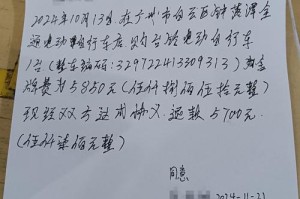 2024年10月13日,在广州市白云区钟
通电动自行车店,购台铃电动自行车
1台(整车编码:329722413309313)购车
牌费为5850元(伍仟捌佰伍拾元整)
现经双方达成协义.退款5700元.
(伍仟柒佰元整)
同意
2024-11-21